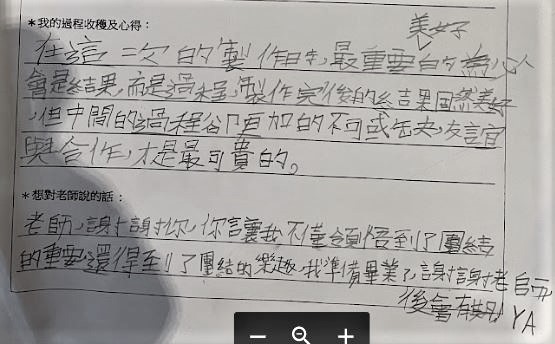 *我的過程收穫及心得：
美好
在這一次的製作時,最重要的
會是結果,而是過程,製作完後的結果固然美好
,但中間的過程卻更加的不可或缺,友誼
與合作,才是最可貴的。
*想對老師說的話：
老師,謝謝你,你讓我不僅領悟到了團結
的重要,還得到了團結的樂趣,我準備畢業了,謝謝老師,
後會有期! YA